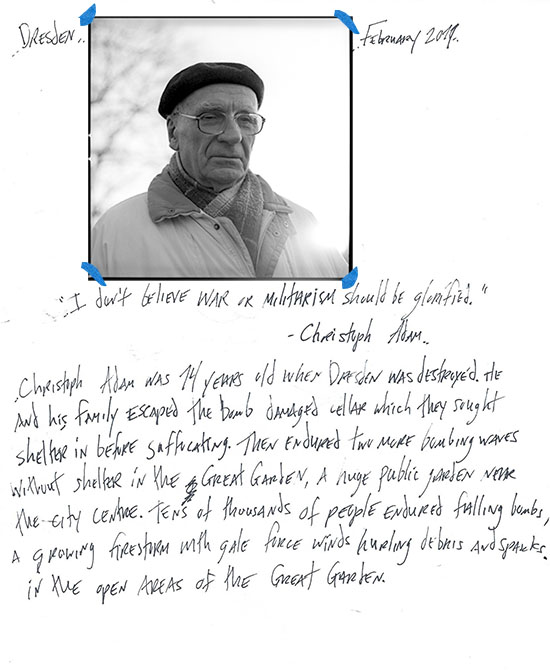 Dresden.. February 2019..
"I don't believe war or militarism should be glorified."
- Christoph Adam..
Christoph Adam was 14 years old when Dresden was destroyed. He
and his family escaped the bomb damaged cellar which they sought
shelter in before suffocating. Then endured two more bombing waves
without shelter in the Great Garden, a huge public garden near
the city centre. Tens of thousands of people endured falling bombs,
a growing firestorm with gale force winds hurling debris and sparks.
in the open areas of the Great Garden.